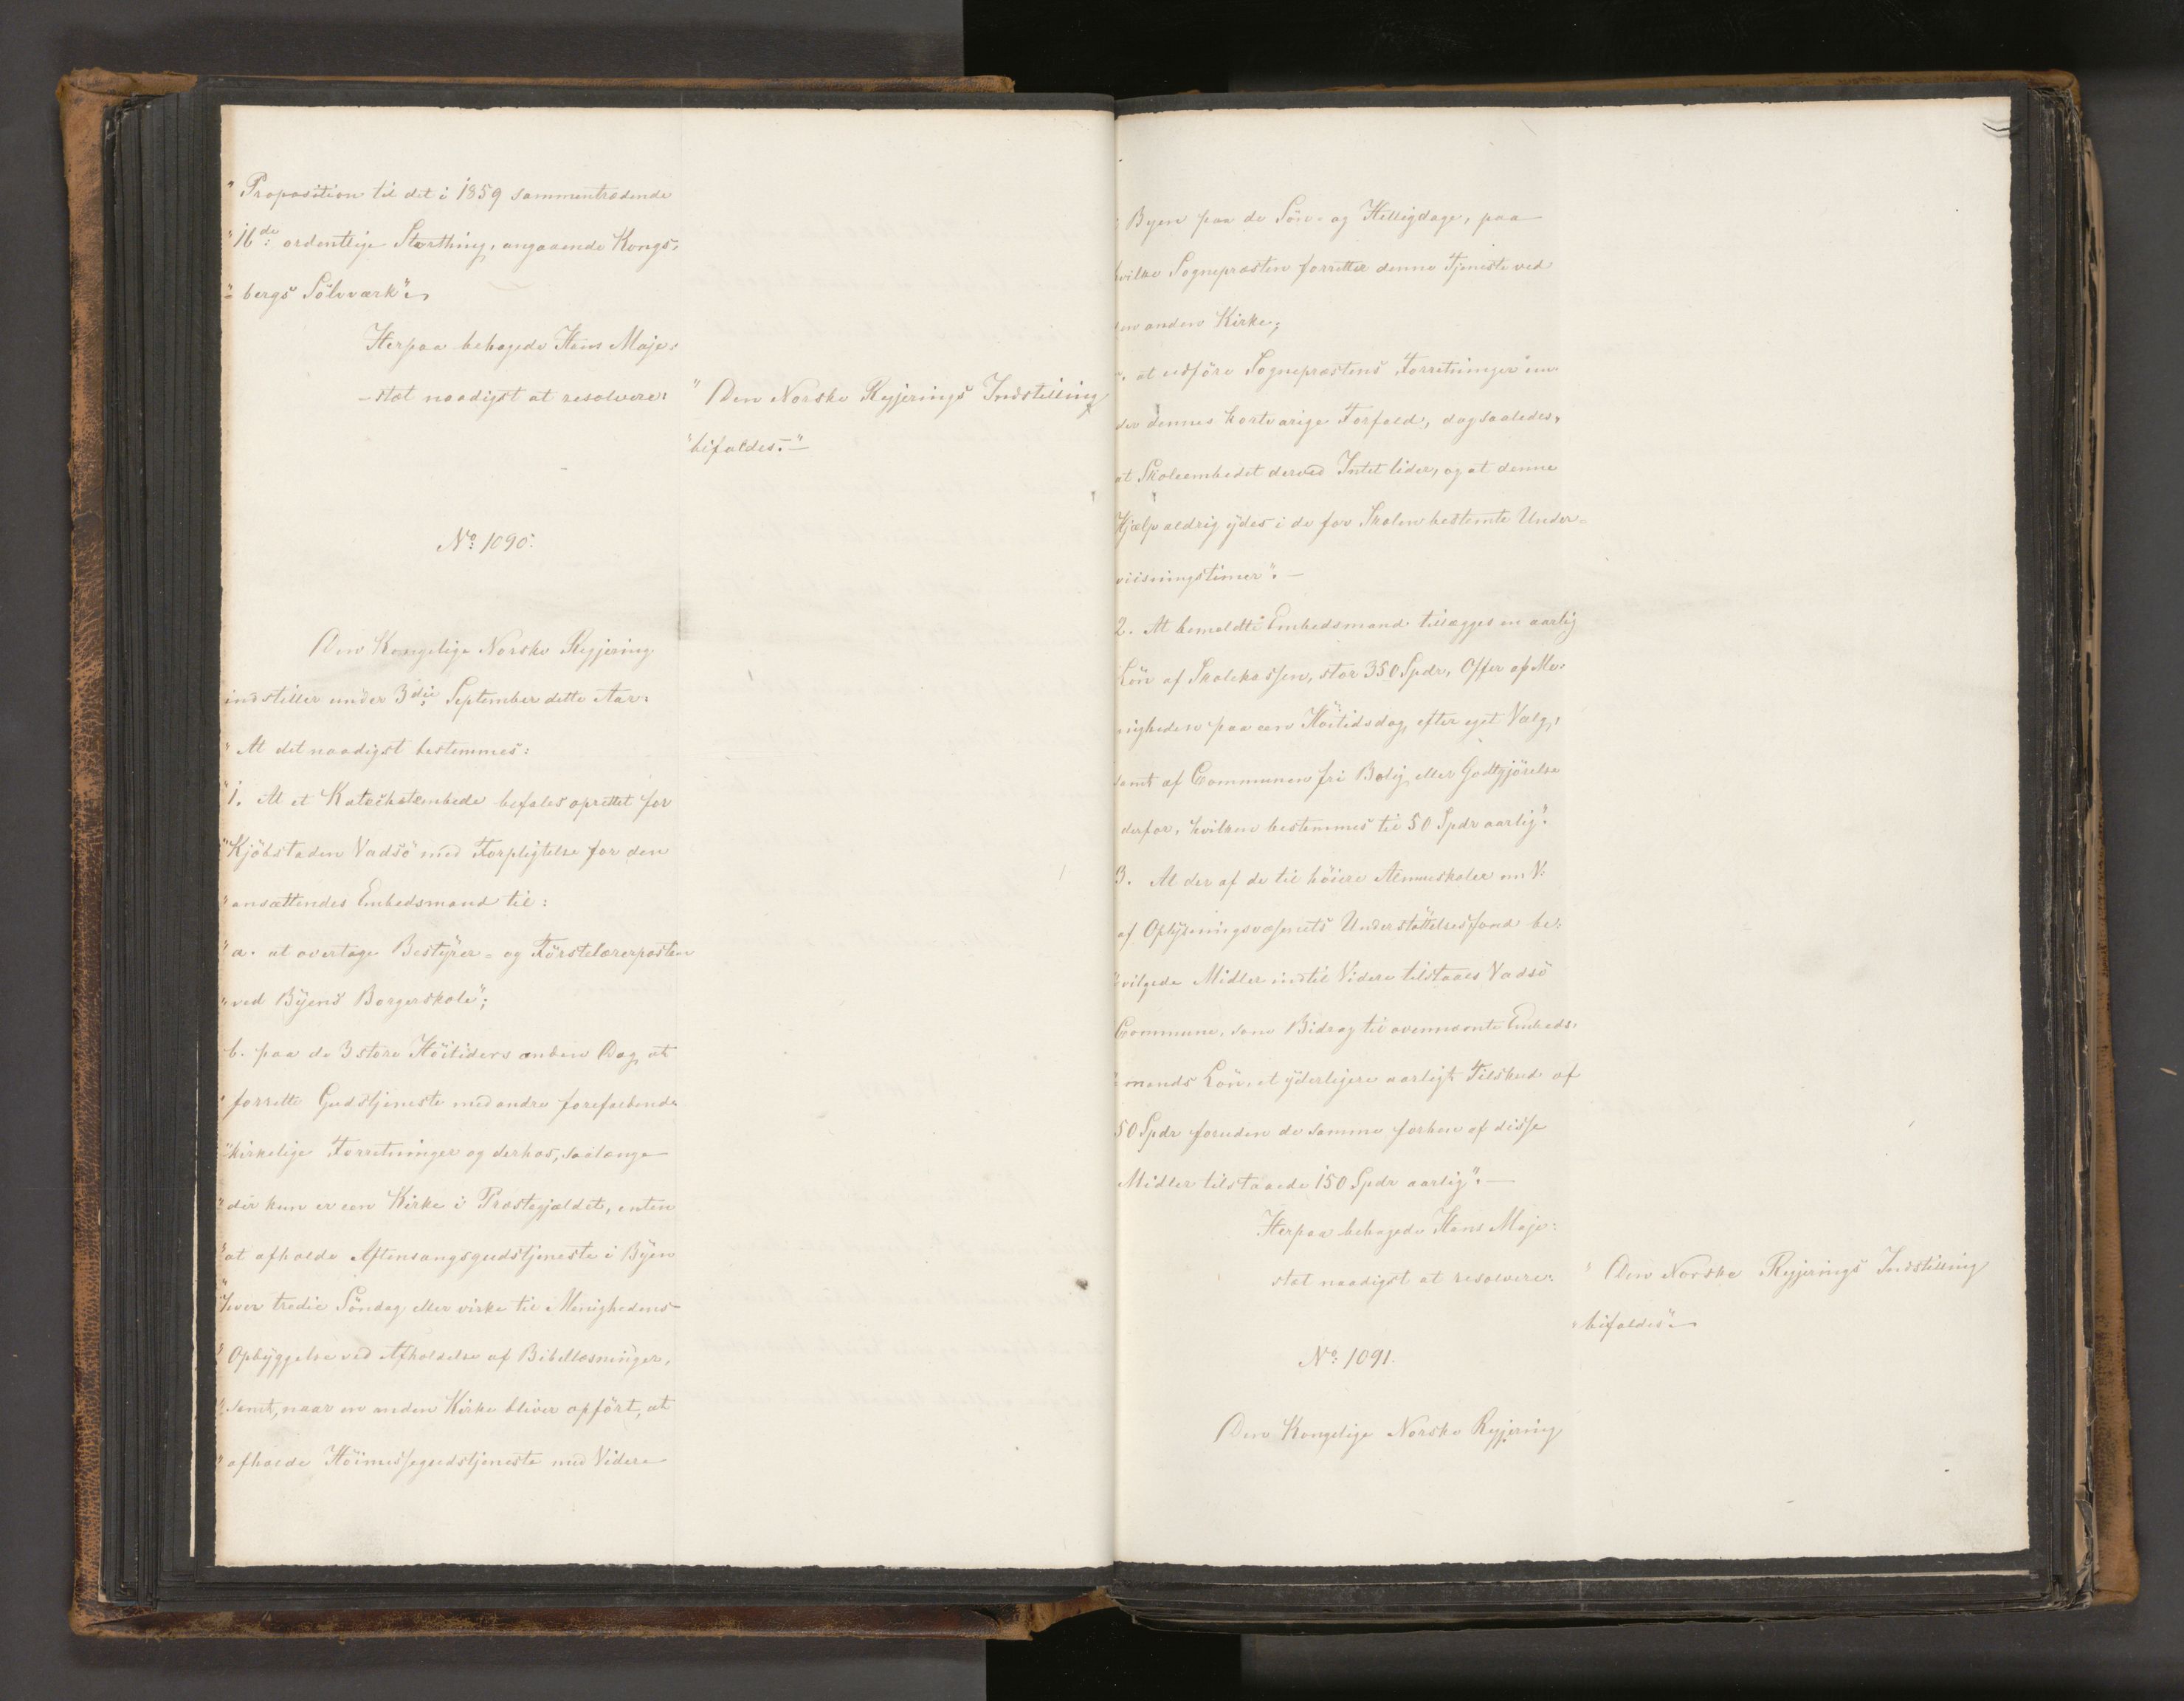 "Proposition til det i 1859 sammentrædende
"16de: ordentlige Storthing, angaaende Kongs-
"bergs Sölvværk".
Herpaa behagede Hans Maje-
-stæt naadigst at resolvere:
"Den Norske Regjerings Indstilling
"bifaldes."-
No: 1090.
Den Kongelige Norske Regjering
indstiller under 3die September dette Aar:
"At det naadigst bestemmes:
"1. At et Katechetembede befales oprettet for
"Kjöbstaden Vadsö med Forpligtelse for den
"ansættendes Embedsmand til:
"a. at overtage Bestyrer- og Förstelærerposten
"ved Byens Borgerskole";
b. paa de 3 store Höitiders anden Dag at
"forrette Gudstjeneste med andre forefaldende
"kirkelige Forretninger og derhos, saalænge
"der kun er een Kirke i Præstegjældet, enten
"at afholde Aftensangsgudstjeneste i Byen
"hver tredie Söndag eller virke til Menighedens
"Opbyggelse ved Afholdelse af Bibellæsninger,
"samt, naar en anden Kirke bliver opfört, at
"afholde Höimessegudstjeneste med Videre
i Byen paa de Sön- og Helligdage, paa
hvilke Sognepræsten forretter denne Tjeneste ved
den anden Kirke;
c. at udföre Sognepræstens Forretninger un-
der dennes kortvarige Forfald, dog saaledes,
at Skoleembedet derved Intet lider, og at denne
Hjælp aldrig ydes i de for Skolen bestemte Under-
viisningstimer".-
2. At bemeldte Embedsmand tillægges en aarlig
Lön af Skolekassen, stor 350 Spdr, Offer af Me-
nigheden paa een Höitidsdag, efter eget Valg,
samt af Communen fri Bolig eller Godtgjörelse
derfor, hvilken bestemmes til 50 Spdr aarlig".
3. At der af de til höiere Almueskoler m. V.
af Oplysningsvæsenets Understöttelsesfond be-
vilgede Midler indtil Videre tilstaaes Vadsö
Commune, som Bidrag til ovennævnte Embeds-
mands Lön, et yderligere aarligt Tilskud af
50 Spdr foruden de samme forhen af disse
Midler tilstaaede 150 Spdr aarlig".-
Herpaa behagede Hans Maje-
stæt naadigst at resolvere:
"Den Norske Regjerings Indstilling
"bifaldes".-
No: 1091.
Den Kongelige Norske Regjering